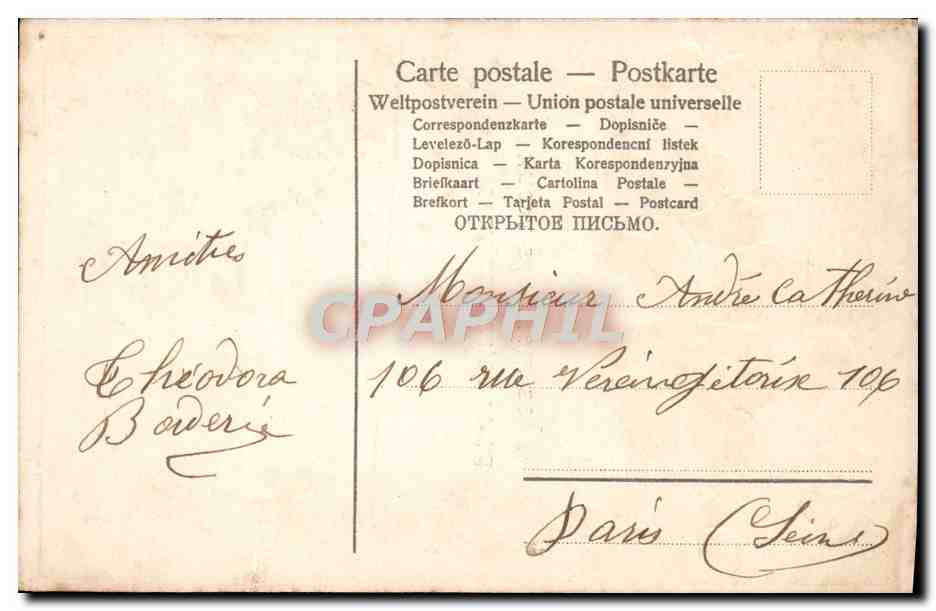 Carte postale — Postkarte
Weltpostverein — Union postale universelle
Correspondenzkarte — Dopisniče —
Levelező-Lap — Korespondencní listek
Dopisnica — Karta Korespondenzyjna
Briefkaart — Cartolina Postale —
Brefkort — Tarjeta Postal — Postcard
ОТКРЫТОЕ ПИСЬМО.
Amitiés
Théodora
Monsieur André Catherine
106 rue Vercingétorix 106
Paris (Seine)
CPAPHIL